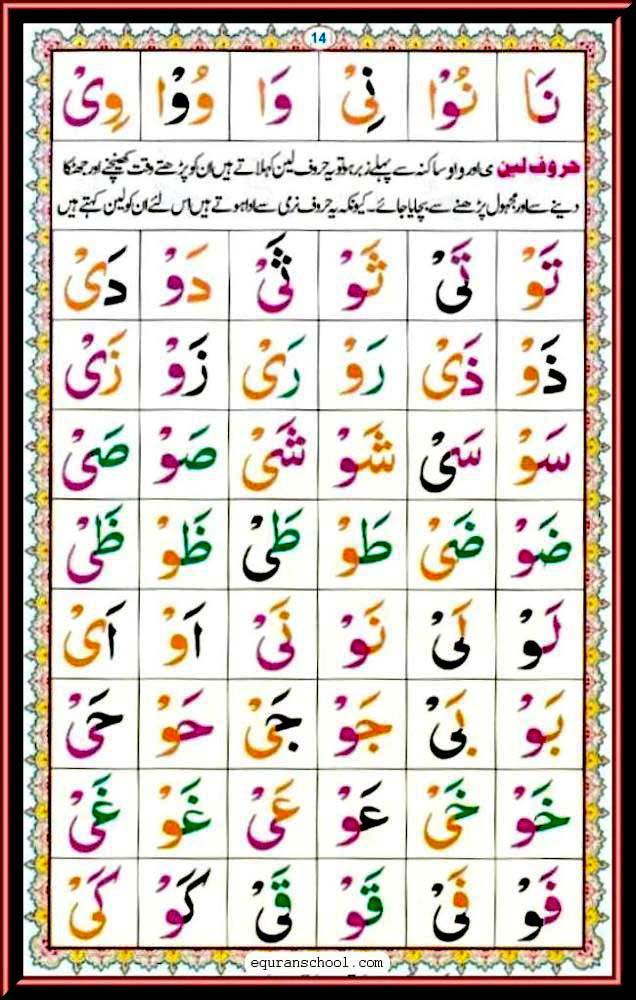 14
نَا نُوْا نِیْ وَا وُوْا وِیْ
حروف لین ی اور واو ساکنہ سے پہلے زبر ہو تو یہ حروف لین کہلاتے ہیں ان کو پڑھتے وقت کھینچنے اور جھٹکا
دینے سے اور مجہول پڑھنے سے بچایا جائے۔ کیونکہ یہ حروف نرمی سے ادا ہوتے ہیں اس لئے ان کو لین کہتے ہیں
تَوْ تَیْ ثَوْ ثَیْ دَوْ دَیْ
ذَوْ ذَیْ رَوْ رَیْ زَوْ زَیْ
سَوْ سَیْ شَوْ شَیْ صَوْ صَیْ
ضَوْ ضَیْ طَوْ طَیْ ظَوْ ظَیْ
لَوْ لَیْ نَوْ نَیْ اَوْ اَیْ
بَوْ بَیْ جَوْ جَیْ حَوْ حَیْ
خَوْ خَیْ عَوْ عَیْ غَوْ غَیْ
فَوْ فَیْ قَوْ قَیْ کَوْ کَیْ
equranschool.com